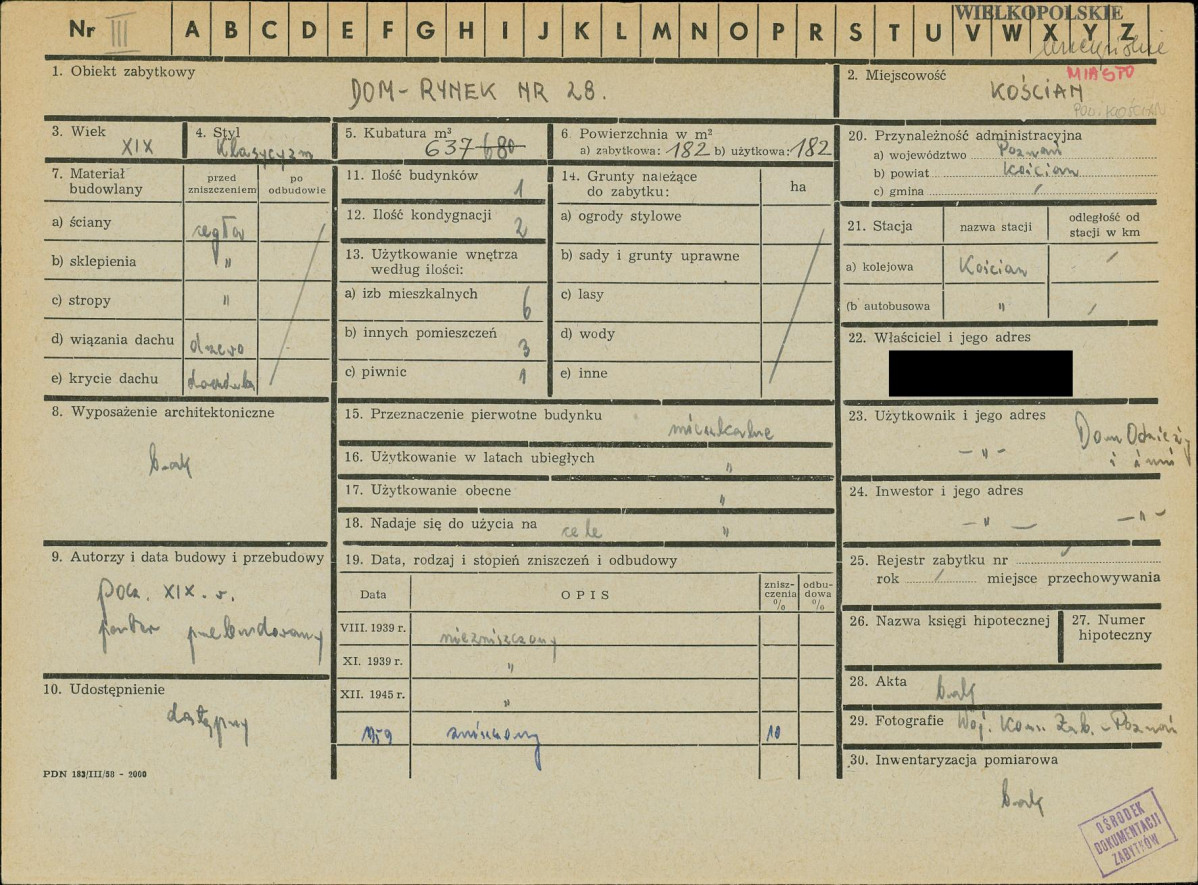 WIELKOPOLSKIE
Nr III A B C D E F G H I J K L M N O P R S T U V W X Y Z
1. Obiekt zabytkowy
DOM - RYNEK NR 28.
2. Miejscowość
MIASTO
KOŚCIAN
POW. KOŚCIAN
3. Wiek
XIX
4. Styl
Klasycyzm
5. Kubatura m³
637 680
6. Powierzchnia w m²
a) zabytkowa: 182 b) użytkowa: 182
7. Materiał budowlany
przed zniszczeniem
po odbudowie
a) ściany cegła
b) sklepienia "
c) stropy "
d) wiązania dachu drzewo
e) krycie dachu dachówka
8. Wyposażenie architektoniczne
brak
9. Autorzy i data budowy i przebudowy
pocz. XIX. w.
parter przebudowany
10. Udostępnienie
dostępny
PDN 183/III/58 - 2000
11. Ilość budynków 1
12. Ilość kondygnacji 2
13. Użytkowanie wnętrza
według ilości:
a) izb mieszkalnych 6
b) innych pomieszczeń 3
c) piwnic 1
14. Grunty należące
do zabytku:
ha
a) ogrody stylowe
b) sady i grunty uprawne
c) lasy
d) wody
e) inne
15. Przeznaczenie pierwotne budynku mieszkalne
16. Użytkowanie w latach ubiegłych "
17. Użytkowanie obecne "
18. Nadaje się do użycia na cele "
19. Data, rodzaj i stopień zniszczeń i odbudowy
Data
OPIS
znisz-
czenia
%
odbu-
dowa
%
VIII. 1939 r. niezniszczony
XI. 1939 r. "
XII. 1945 r. "
1959 zniszczony 10
20. Przynależność administracyjna
a) województwo Poznań
b) powiat Kościan
c) gmina /
21. Stacja
nazwa stacji
odległość od
stacji w km
a) kolejowa Kościan /
(b autobusowa " /
22. Właściciel i jego adres
23. Użytkownik i jego adres
- " - Dom Odzieży
i inni
24. Inwestor i jego adres
- " - - " -
25. Rejestr zabytku nr /
rok / miejsce przechowywania
26. Nazwa księgi hipotecznej
27. Numer
hipoteczny
28. Akta
brak
29. Fotografie Woj. Kons. Zab. - Poznań
30. Inwentaryzacja pomiarowa
brak
OŚRODEK
DOKUMENTACJI
ZABYTKÓW